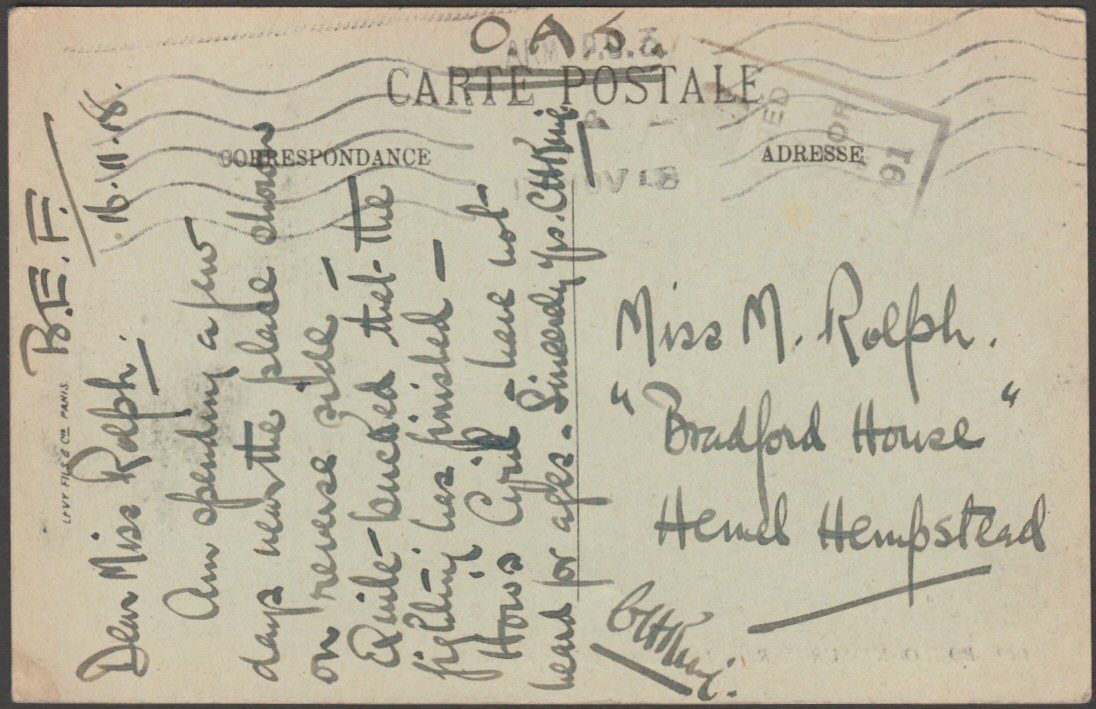 OAS
ARMY P.O. 3
CARTE POSTALE
CORRESPONDANCE
ADRESSE
NOV 18
91
LEVY FILS & Co PARIS.
B.E.F.
16.11.18.
Dear Miss Rolph.
Am spending a few
days near the place shown
on reverse side –
Quite bucked that the
fighting has finished –
Hows Cyril – have not
heard for ages. Sincerely Yrs. CHKing
Miss M. Rolph.
"Bradford House"
Hemel Hempstead
CHKing.